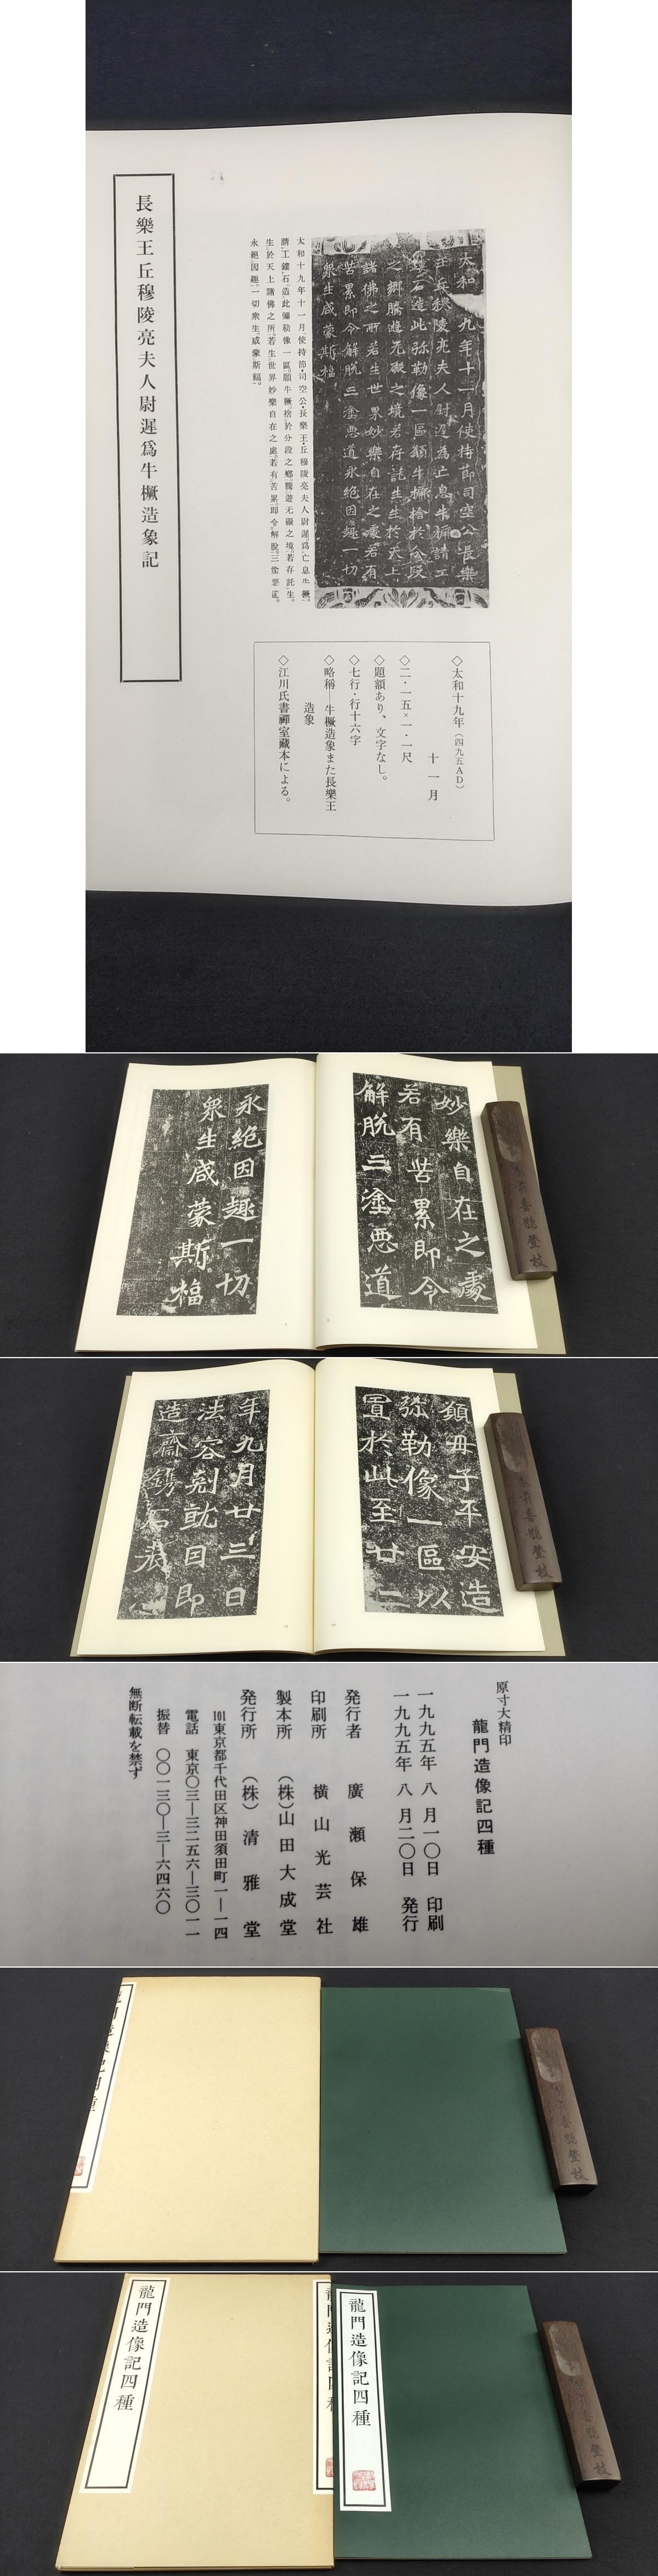 長樂王丘穆陵亮夫人尉遲爲牛橛造象記
太和十九年十一月使持節司空公長樂
王丘穆陵亮夫人尉遲為亡息牛橛請工
鏤石造此弥勒像一區願牛橛捨於分段
之鄉騰遊无礙之境若存託生生於天上
諸佛之所若生世界妙樂自在之處若有
苦累即令解脱三塗惡道永絕因趣一切
衆生咸蒙斯福
太和十九年十一月、使持節・司空公・長樂王・丘穆陵亮夫人尉遲、爲亡息牛橛、
請工鏤石、造此彌勒像一區。願牛橛、捨於分段之鄉、騰遊无礙之境。若存託生、
生於天上諸佛之所。若生世界妙樂自在之處。若有苦累、即令解脫。三塗惡道、
永絕因趣。一切衆生、咸蒙斯福。
◇太和十九年(四九五AD)
十一月
◇二・一五×一・一尺
◇題額あり、文字なし。
◇七行・行十六字
◇略稱―牛橛造象また長樂王
造象
◇江川氏書禪室藏本による。
妙樂自在之處
若有苦累即令
解脱三塗惡道
永絕因趣一切
衆生咸蒙斯福
願母子平安造
弥勒像一區以
置於此至廿二
年九月廿三日
法容剋就因即
造齋鐫石表心
原寸大精印
龍門造像記四種
一九九五年八月一〇日 印刷
一九九五年八月二〇日 発行
発行者 廣瀬保雄
印刷所 横山光芸社
製本所 (株)山田大成堂
発行所 (株)清雅堂
101東京都千代田区神田須田町一―一四
電話 東京〇三―三二五六―三〇一一
振替 〇〇一三〇―三―六四六〇
無断転載を禁ず
龍門造像記四種
龍門造像記四種
龍門造像記四種
龍門造像記四種